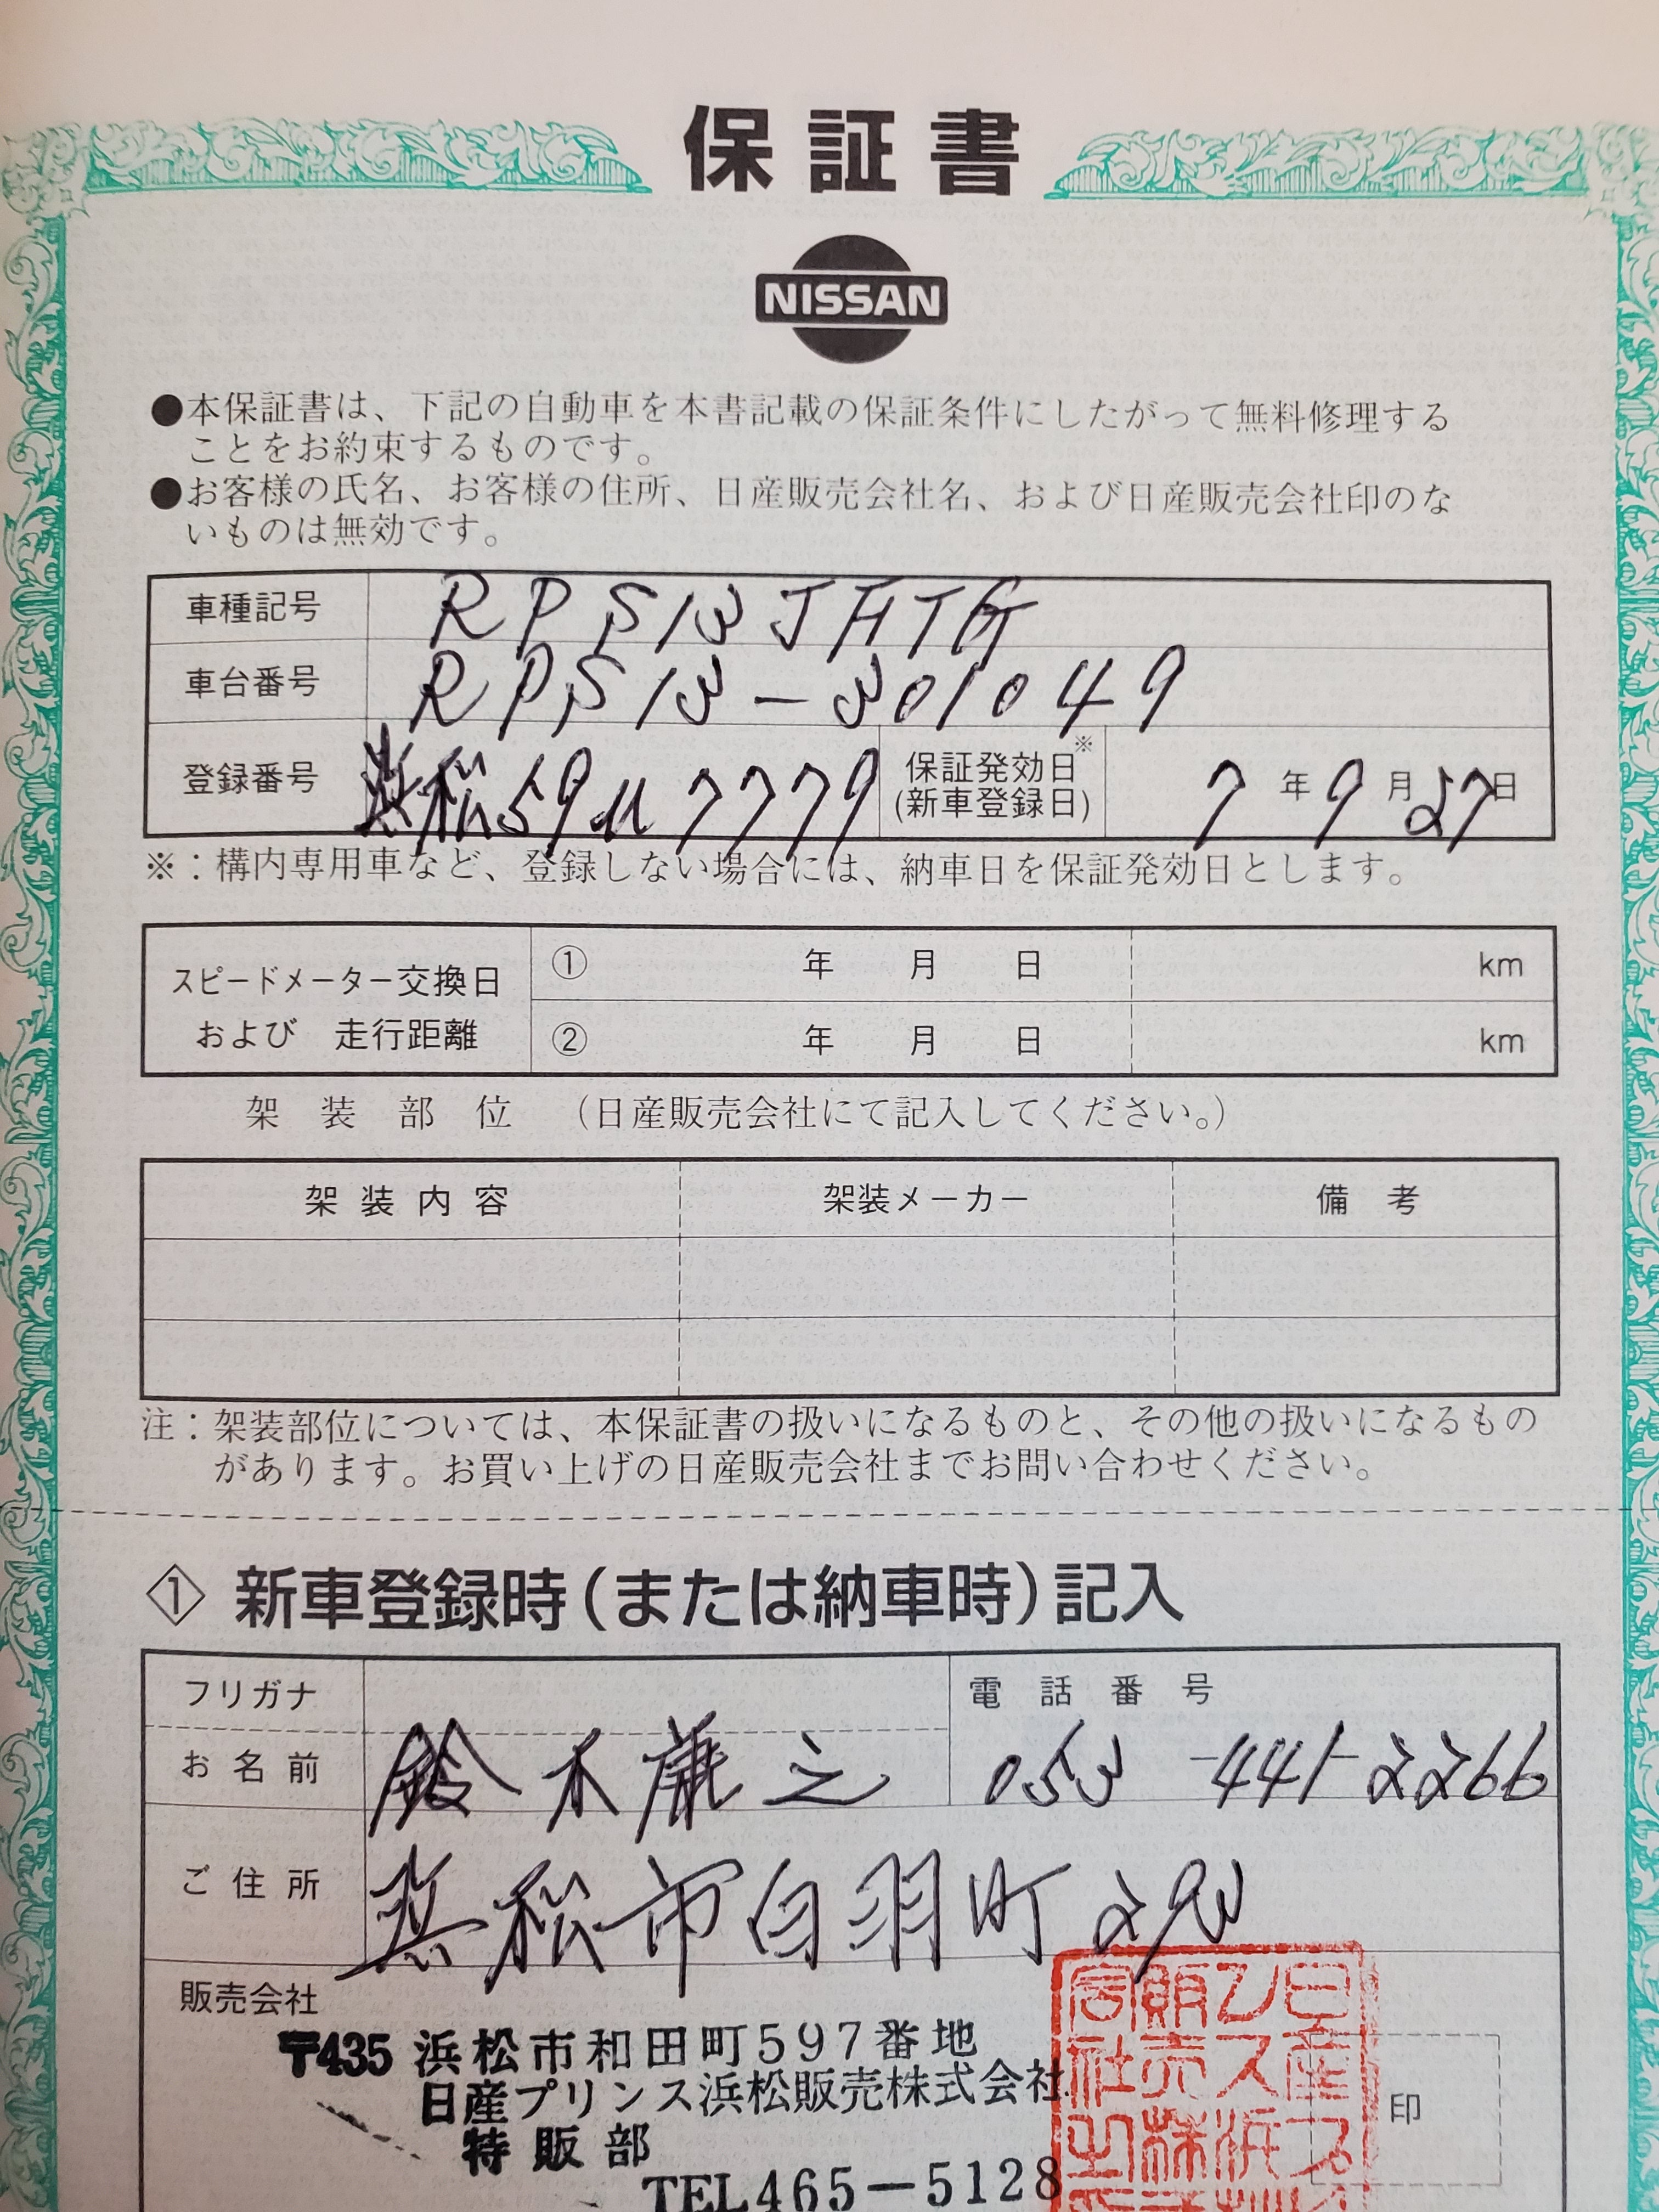 保証書
NISSAN
●本保証書は、下記の自動車を本書記載の保証条件にしたがって無料修理する
ことをお約束するものです。
●お客様の氏名、お客様の住所、日産販売会社名、および日産販売会社印のな
いものは無効です。
車種記号 RPS13JHTG
車台番号 RPS13-301049
登録番号 浜松59 7779 保証発効日※ (新車登録日) 7年9月27日
※：構内専用車など、登録しない場合には、納車日を保証発効日とします。
スピードメーター交換日
および 走行距離
① 年 月 日 km
② 年 月 日 km
架装部位 （日産販売会社にて記入してください。）
架装内容 架装メーカー 備考
注：架装部位については、本保証書の扱いになるものと、その他の扱いになるもの
があります。お買い上げの日産販売会社までお問い合わせください。
① 新車登録時（または納車時）記入
フリガナ 電話番号
お名前 鈴木 之 053-441-2266
ご住所 浜松市白羽町293
販売会社
〒435 浜松市和田町597番地
日産プリンス浜松販売株式会社
特販部
TEL465-5128
印
日産プ
リンス浜
販売株
会社